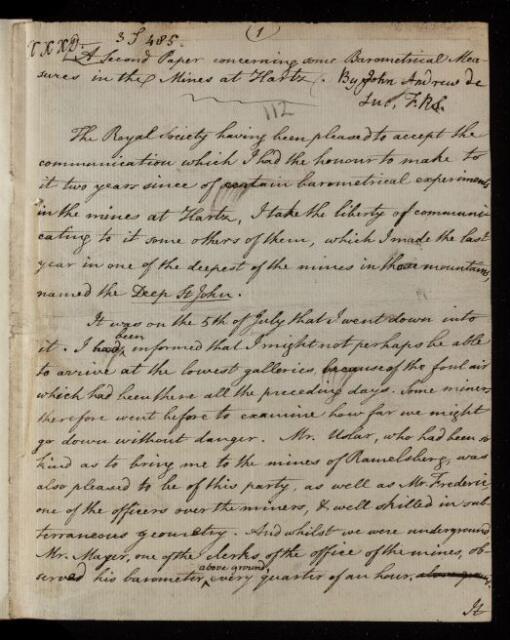 (1)
XXXV. 3 S 485.
A Second Paper concerning some Barometrical Mea-
sures in the Mines at Hartz. By John Andrew de
Luc, F.R.S.
112
The Royal Society having been pleased to accept the
communication which I had the honour to make to
it two years since of certain barometrical experiments
in the mines at Hartz, I take the liberty of communi-
cating to it some others of them, which I made the last
year in one of the deepest of the mines in those mountains,
named the Deep St John.
It was on the 5th of July that I went down into
it. I had been informed that I might not perhaps be able
to arrive at the lowest galleries, because of the foul air
which had been there all the preceding days. Some miners
therefore went before to examine how far we might
go down without danger. Mr. Uslar, who had been so
kind as to bring me to the mines of Ramelsberg, was
also pleased to be of this party, as well as Mr. Frederic
one of the officers over the miners, & well skilled in sub-
terraneous geometry. And whilst we were underground
Mr. Mayer, one of the clerks of the office of the mines, ob-
served his barometer above ground, every quarter of an hour, above ground.
It